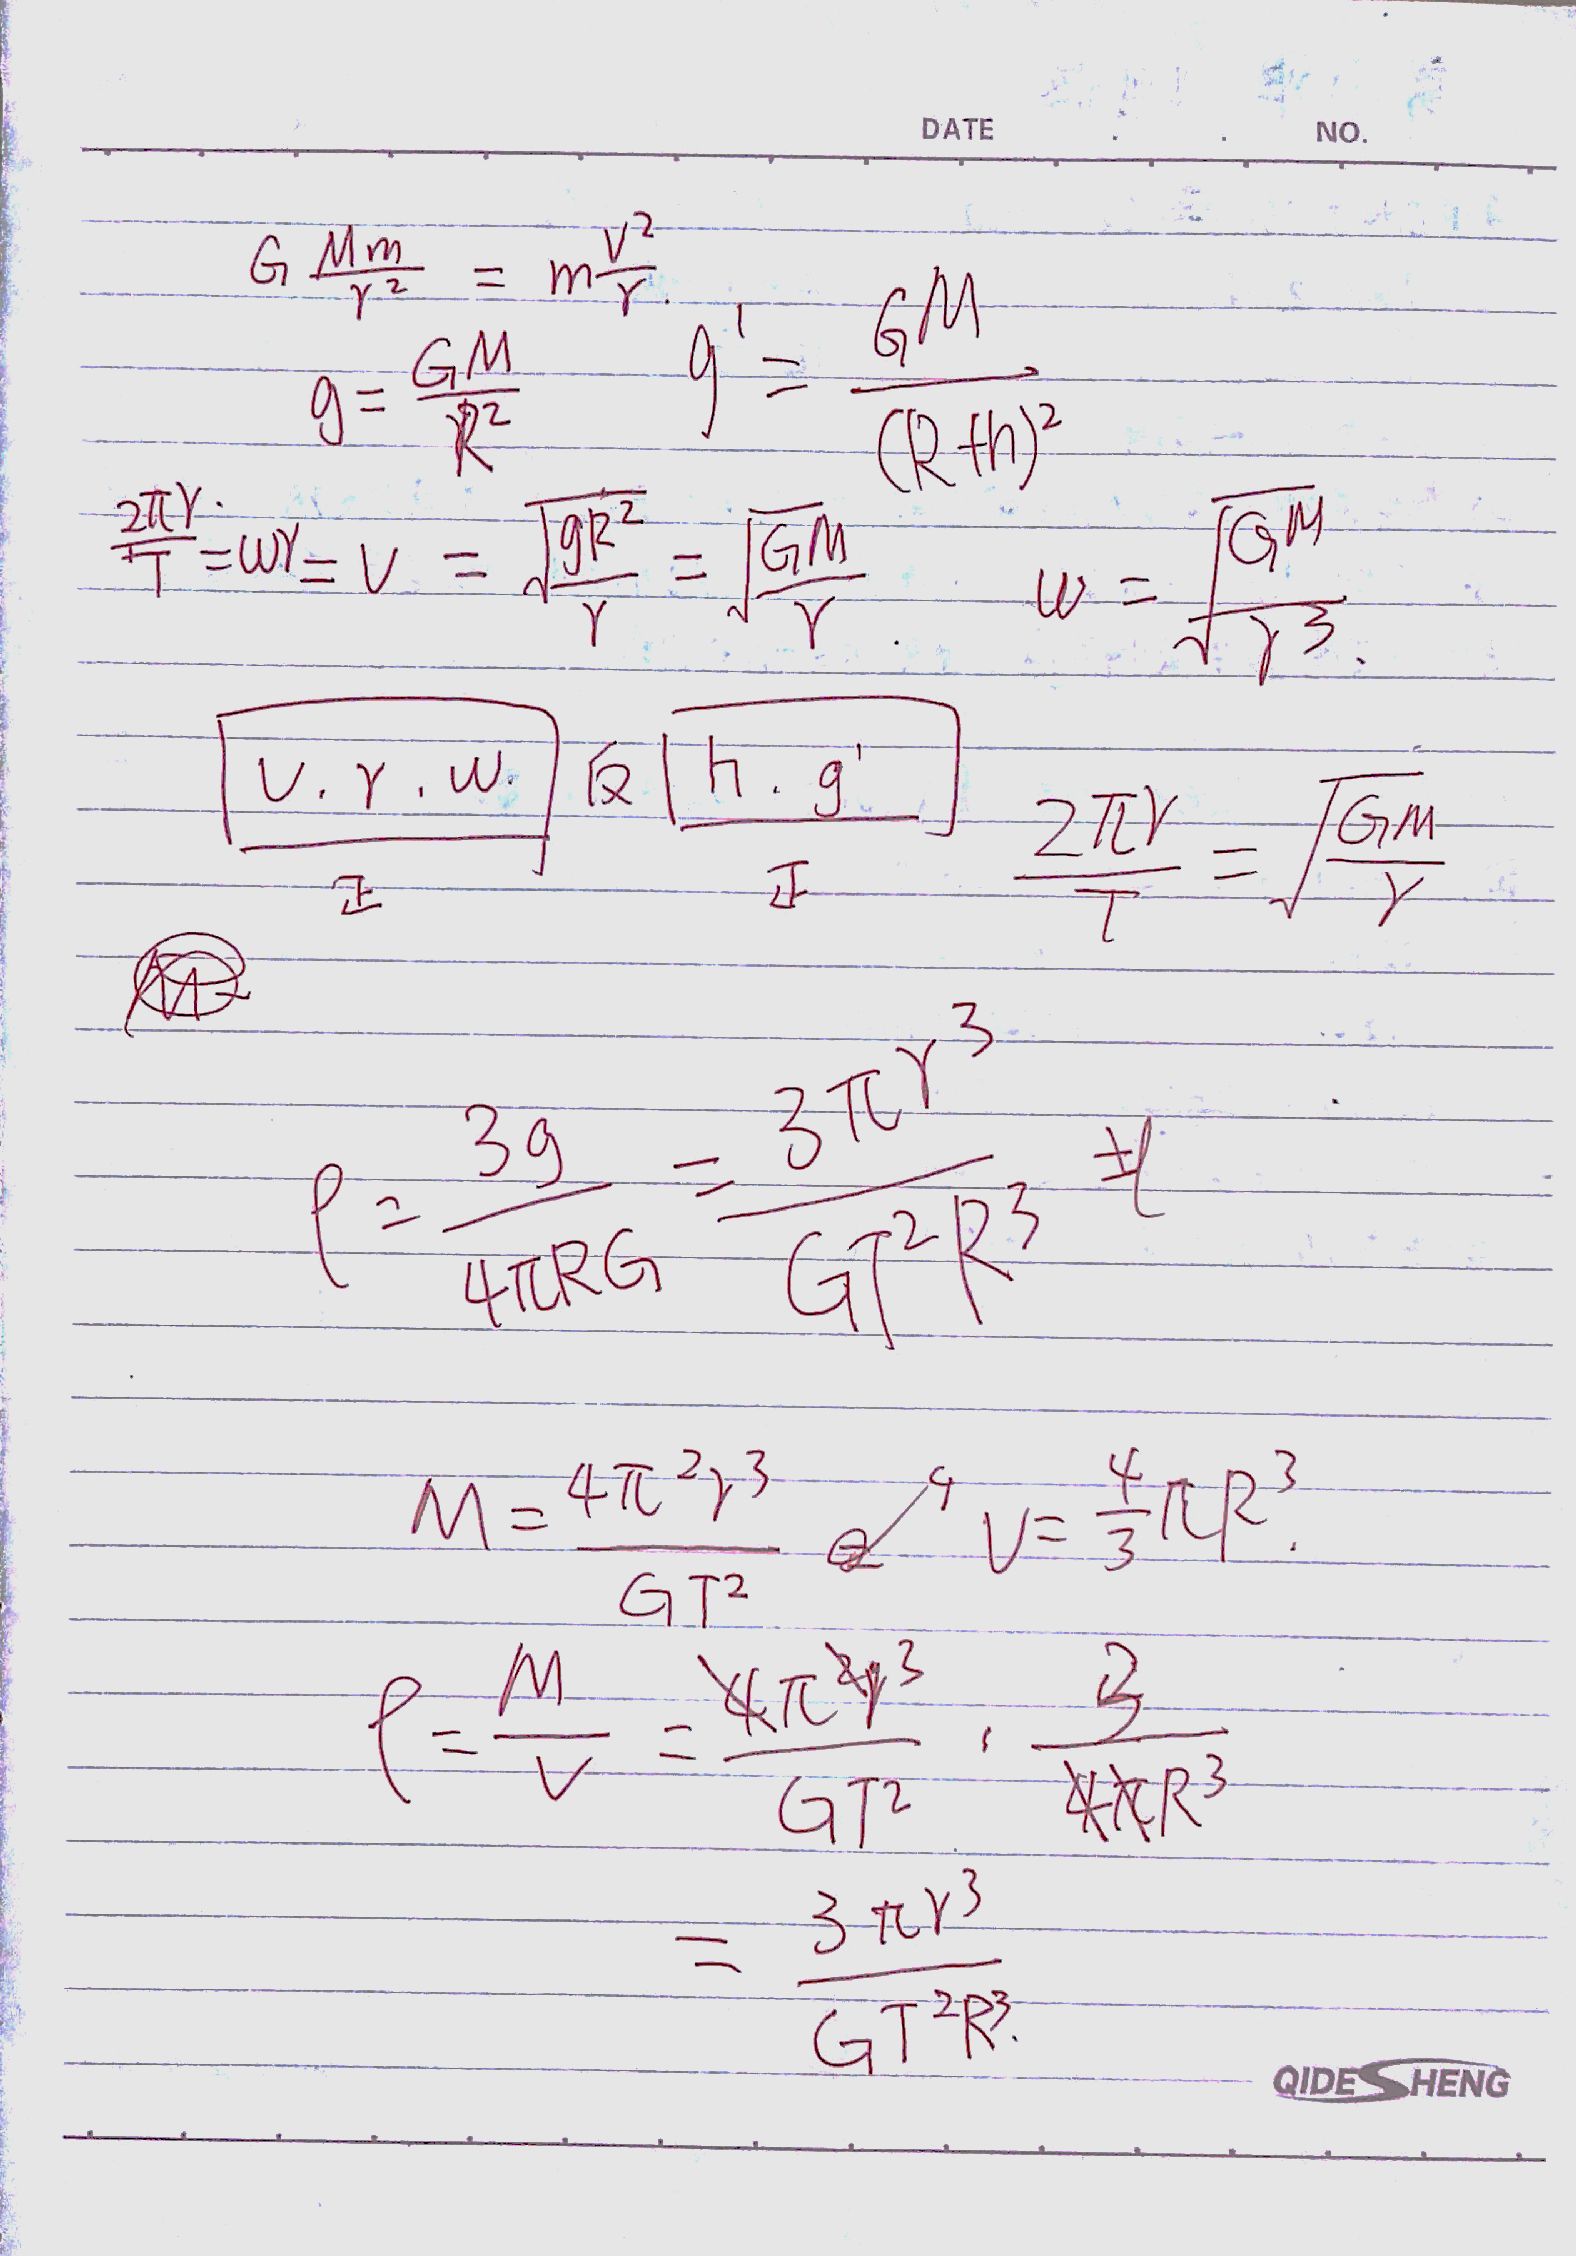 DATE . . NO.
G Mm/r² = m v²/r.
g = GM/R² g' = GM/(R+h)²
2πr/T = wr = v = √(gR²/r) = √(GM/r). w = √GM/√r³.
v. r. w. 反 h. g'
正 正
2πr/T = √(GM/r)
ρ = 3g/4πRG = 3πr³/GT²R³
M = 4π²r³/GT² V = 4/3 πR³.
ρ = M/V = 4π²r³/GT² · 3/4πR³
= 3πr³/GT²R³.
QIDESHENG